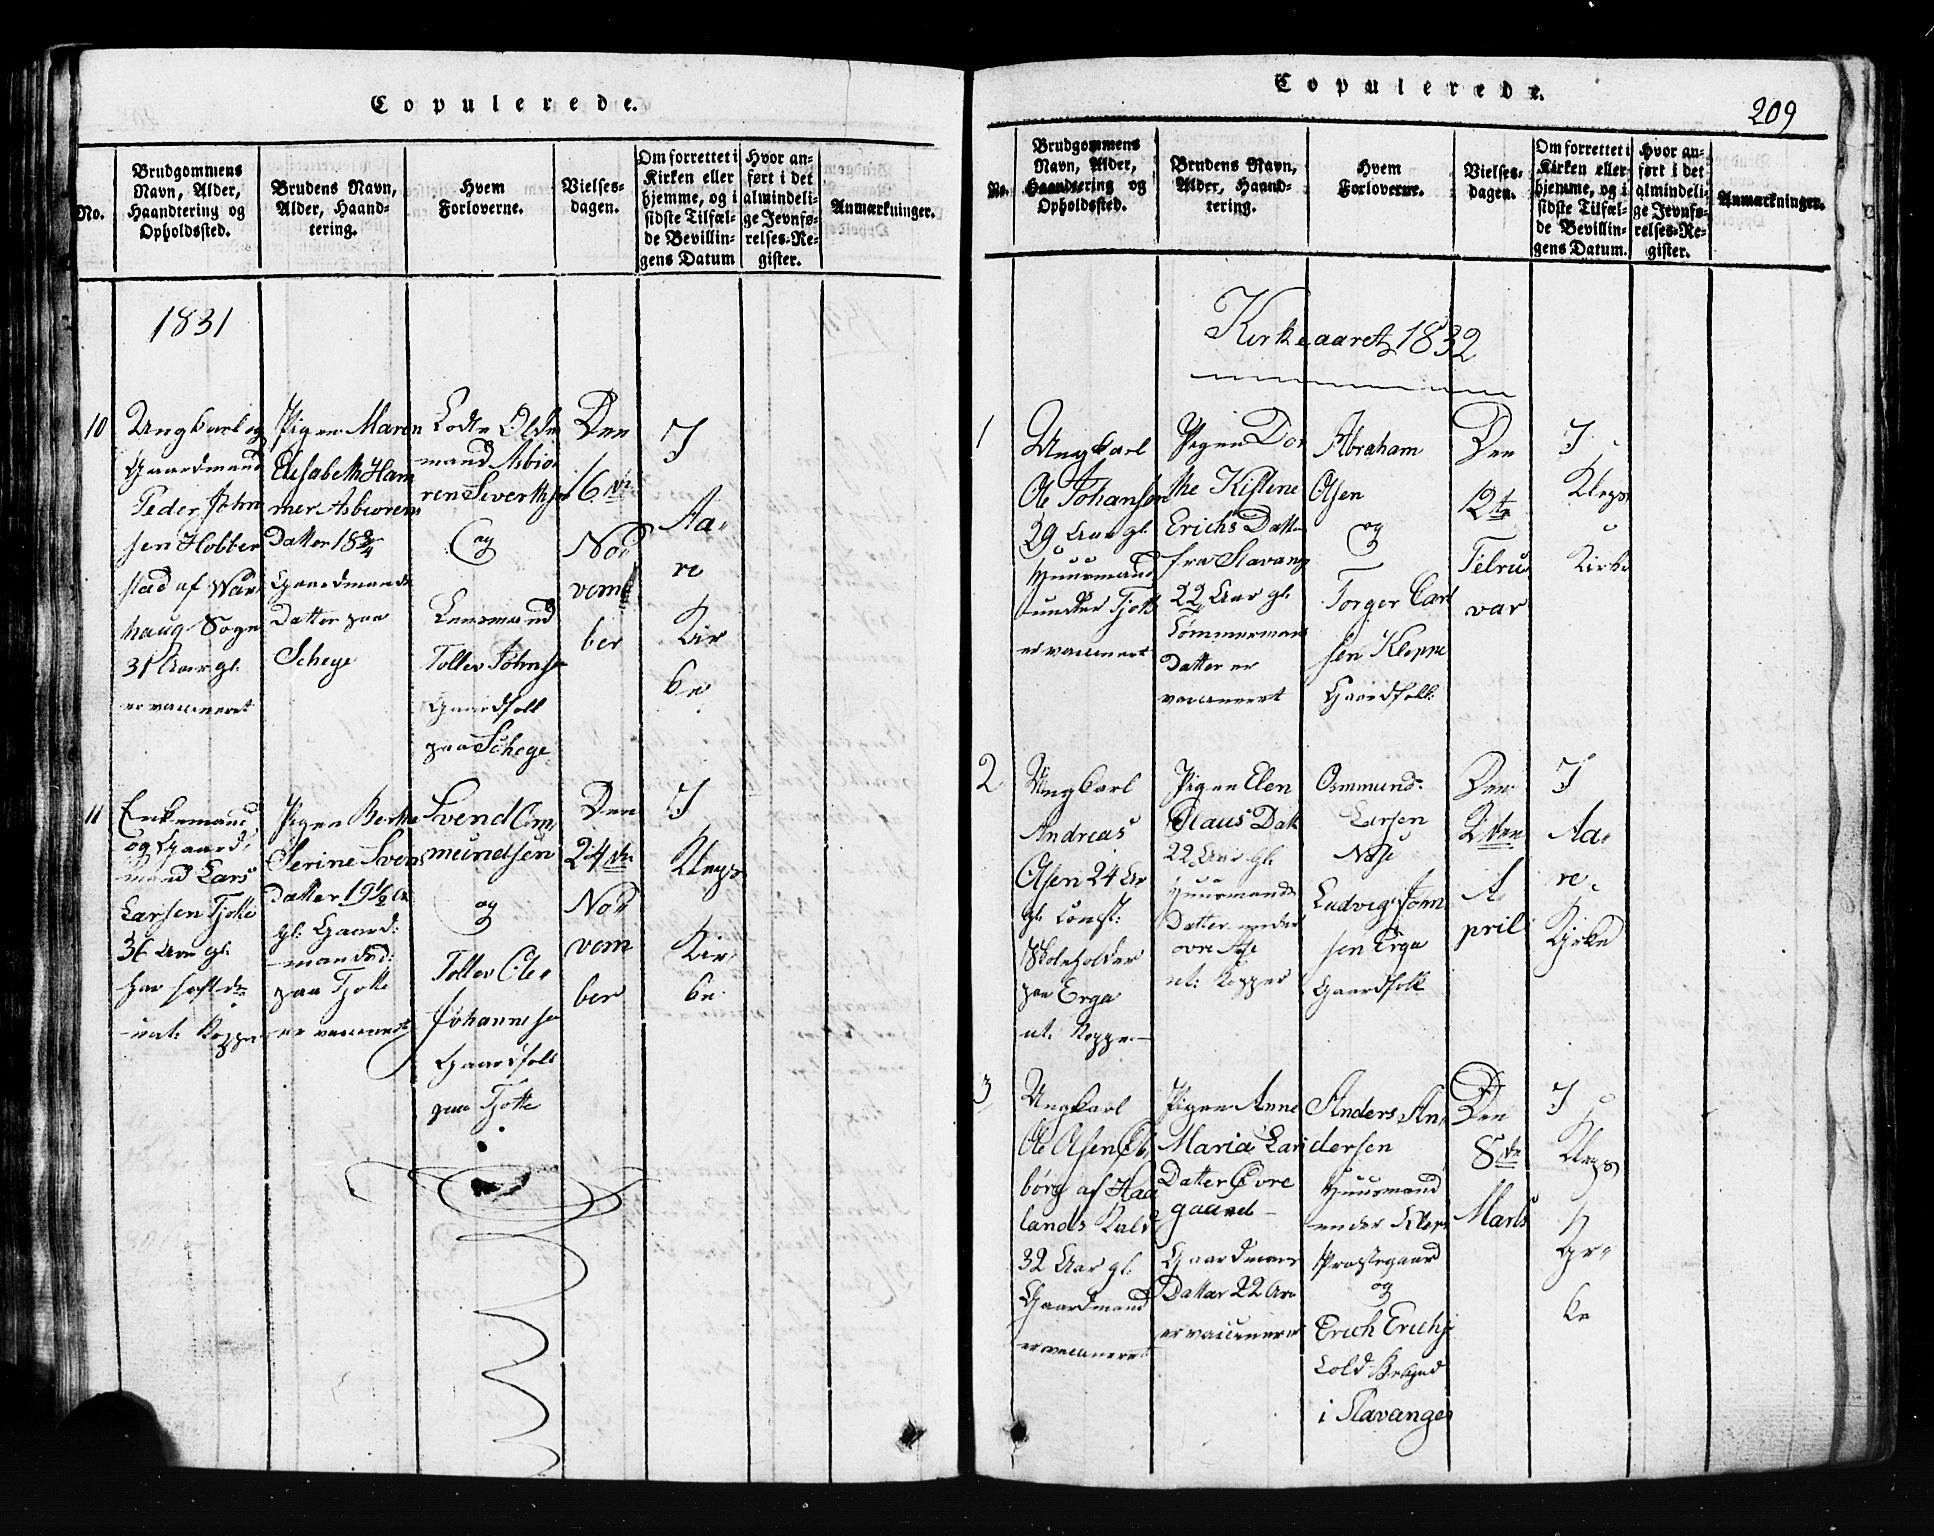 Copulerede.
No.
Brudgommens
Navn, Alder,
Haandtering og
Opholdssted.
Brudens Navn,
Alder, Haand-
tering.
Hvem
Forloverne.
Vielses-
dagen.
Om forrettet i
Kirken eller
hjemme, og i
sidste Tilfæl-
de Bevillin-
gens Datum
Hvor an-
ført i det
almindeli-
ge Jevnfø-
relses-Re-
gister.
Anmærkninger.
1831
10
Ungkarl og
Gaardmand
Peder John
sen Hobber
stad af War
haug Sogn
31 Aar gl.
er vaccineret
Pigen Maren
Elisabeth Ham
mer Asbiorens
Datter 18 3/4
Gaardmands
Datter paa
Schege
Lodtz Olde
mand Asbiö
ren Sivertsen
og
Lensmand
Tollev Johnsen
Gaardfolk
paa Schege
Den
16de
No
vem
ber
I
Aa
re
Kir
ke
11
Enkemand
og Gaard
mand Lars
Larsen Tjotte
36 Aar gl.
har haft de
nat: Kopper
Pigen Berthe
Serine Svens
Datter 19 1/2 Ar
gl. Gaard:
mands d:
paa Tjotte
er vaccineret
Svend Om
mundsen
og
Tollev Ole
Johannesen
Gaardfolk
paa Tjotte
Den
24de
No
vem
ber
I
Kleps
Kir
ke
Copulerede.
209
No.
Brudgommens
Navn, Alder,
Haandtering og
Opholdssted.
Brudens Navn,
Alder, Haand-
tering.
Hvem
Forloverne.
Vielses-
dagen.
Om forrettet i
Kirken eller
hjemme, og i
sidste Tilfæl-
de Bevillin-
gens Datum.
Hvor an-
ført i det
almindeli-
ge Jevnfø-
relses-Re-
gister.
Anmærkninger.
Kirkeaaret 1832
1
Ungkarl
Ole Johansen
29 Aar gl.
Huusmand
under Tjott
er vaccineret
Pigen Dor
the Kistene
Erichs Datter
fra Stavang
22 Aar gl.
Tømmermans
Datter er
vaccineret
Abraham
Olsen
og
Torger Carl
sen Kleppe
Gaardfolk
Den
12te
Februar
var
I
Kleps
Kirke
2
Ungkarl
Andreas
Olsen 24 Ar
gl. Const:
Skoleholder
paa Erga
nt: Kopper
Pigen Elen
Claus Datt
22 Aar gl.
Huusmands
Datter under
nt: Kopper
Osmund
Larsen
Næse
Ludvig Jørn
sen Erga
Gaardfolk
Den
A
pril
I
Aa
re
Kirke
3
Ungkarl
Ole Olsen El
börg af Haa
lands Kald
32 Aar gl.
Gaardmand
er vaccineret
Pigen Anne
Maria Lars
Datter Øvre
gaard
Gaardmans
Datter 22 Ar
er vaccineret
Anders An
dersen
Huusmand
under Klep
Prøstegaard
og
Erich Erichs
i Stavanger
Den
8de
Marts
I
Kleps
Kir
ke